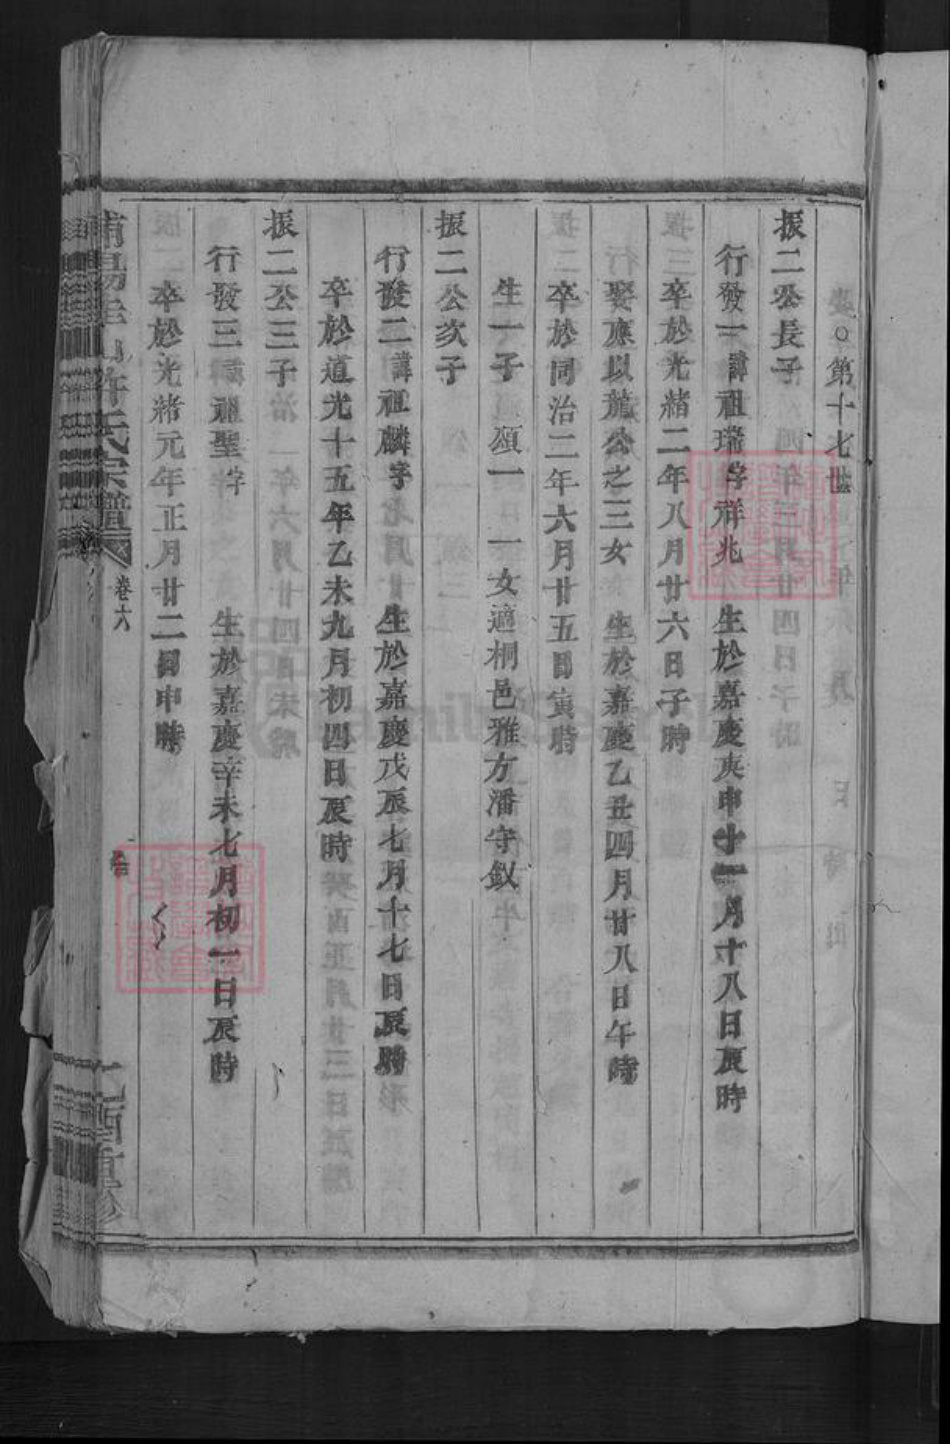 ○第十七世
振二公長子
行發一諱祖瑞字祥兆 生於嘉慶庚申十一月十八日辰時
卒於光緒二年八月廿六日子時
娶應以龍公之三女 生於嘉慶乙丑四月廿八日午時
卒於同治二年六月廿五日寅時
生一子 頌一 一女適桐邑雅方潘守釵
振二公次子
行發二諱祖麟字 生於嘉慶戊辰七月十七日辰時
卒於道光十五年乙未九月初四日辰時
振二公三子
行發三諱祖聖字 生於嘉慶辛未七月初一日辰時
卒於光緒元年正月廿二日申時
浦陽 山許氏宗譜 卷六 重修